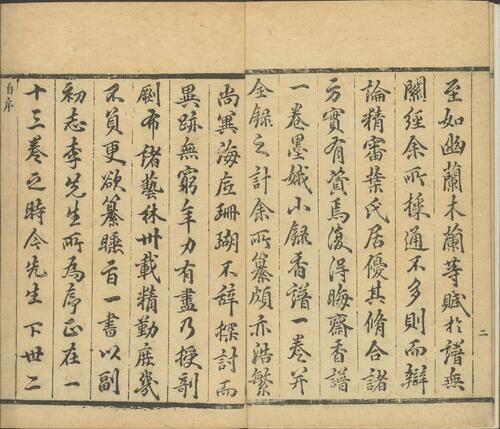 至如幽蘭木蘭等賦於譜無
關經余所採通不多則而辯
論精審葉氏居優其脩合諸
方實有資焉後得晦齋香譜
一卷墨娥小錄香譜一卷并
全錄之計余所纂頗亦浩繁
尚冀海底珊瑚不辭探討而
異跡無窮年力有盡乃授剞
劂布諸藝林卅載精勤庶幾
不負更欲纂睡旨一書以副
初志李先生所為序正在一
十三卷之時今先生下世二
自序
二